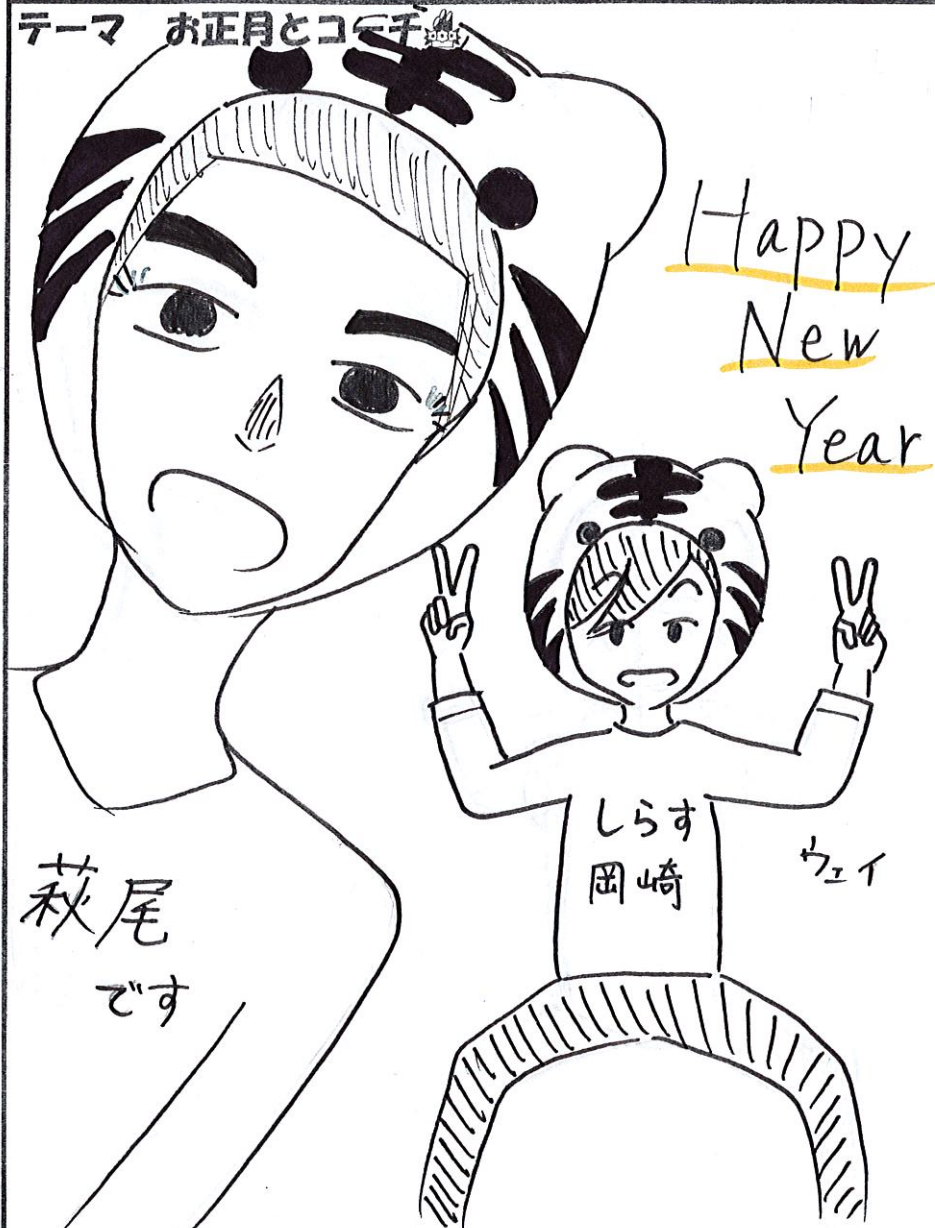 テーマ お正月とコーチ
Happy
New
Year
しらす
岡崎
ウェイ
萩尾
です